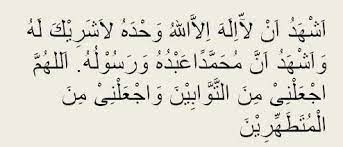 اَشْهَدُ اَنْ لاَّاِلَهَ اِلاَّاللهُ وَحْدَهُ لاَشَرِيْكَ لَهُ
وَاَشْهَدُ اَنَّ مُحَمَّدًاعَبْدُهُ وَرَسُوْلُهُ. اَللهُمَّ
اجْعَلْنِىْ مِنَ التَّوَّابِيْنَ وَاجْعَلْنِىْ مِنَ
الْمُتَطَهِّرِيْنَ